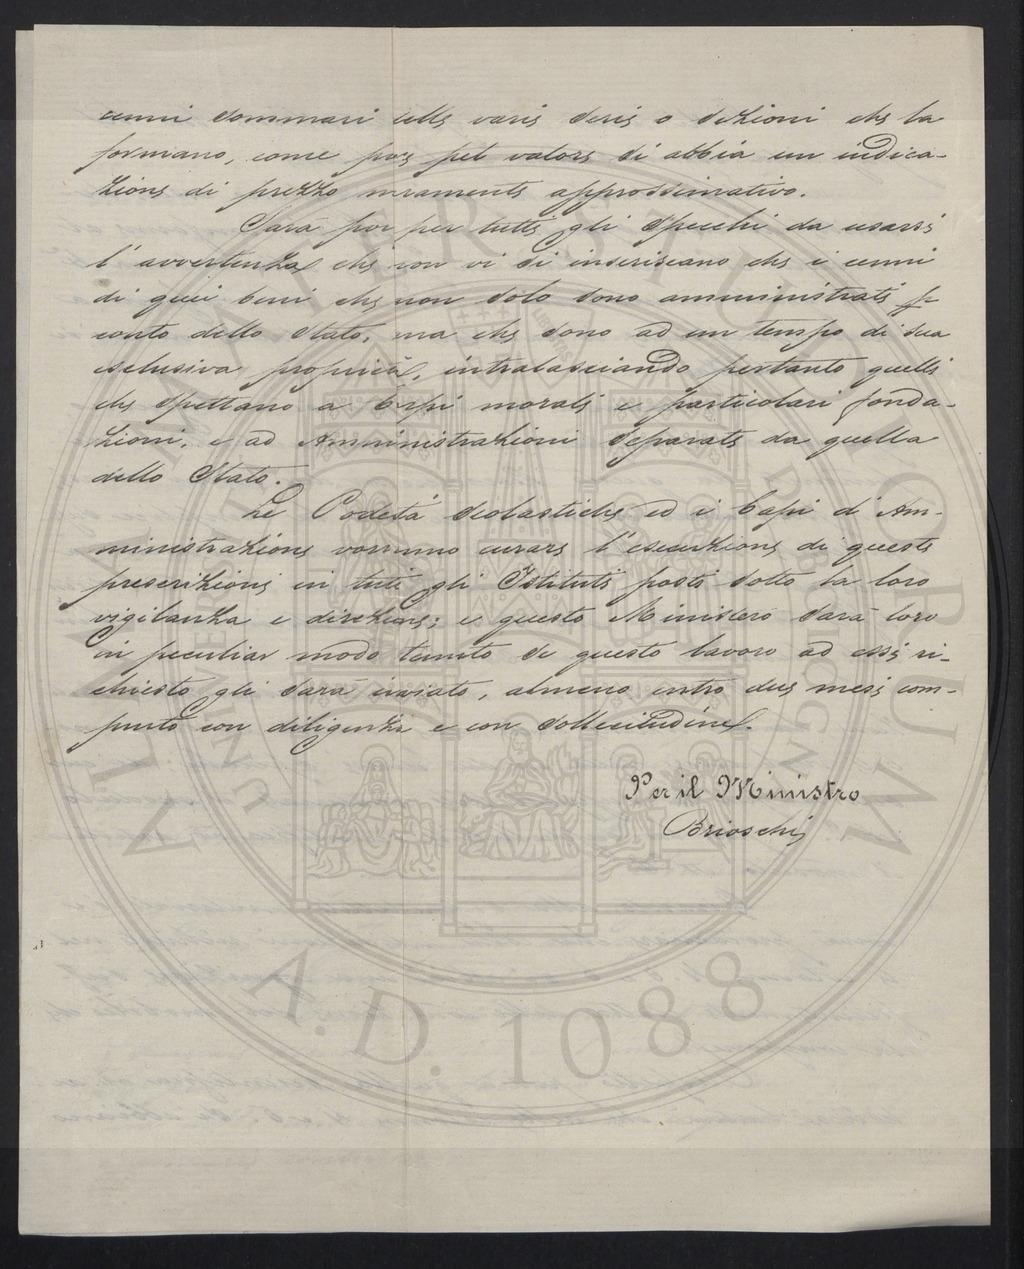 cenni sommari delle varie serie o sezioni che la
formano, come pure pel valore si abbia un indica-
zione di prezzo meramente approssimativo.
Sarà poi per tutti gli specchi da usarsi
l'avvertenza che non vi si inseriscano che i cenni
di quei beni che non solo sono amministrati p
conto dello Stato, ma che sono ad un tempo di sua
esclusiva proprietà, intralasciando pertanto quelli
che spettano a Corpi morali e particolari fonda-
zioni, e ad Amministrazioni separate da quella
dello Stato.
Le Podestà scolastiche ed i Capi d'Am-
ministrazione vorranno curare l'esecuzione di queste
prescrizioni in tutti gli Istituti posti sotto la loro
vigilanza e direzione; e questo Ministero sarà loro
in peculiar modo tenuto se questo lavoro ad essi ri-
chiesto gli sarà inviato, almeno entro due mesi com-
piuto con diligenza e con sollecitudine.
Per il Ministro
Brioschi
ALMA MATER STUDIORUM
UNIVERSITÀ DI BOLOGNA
A.D. 1088